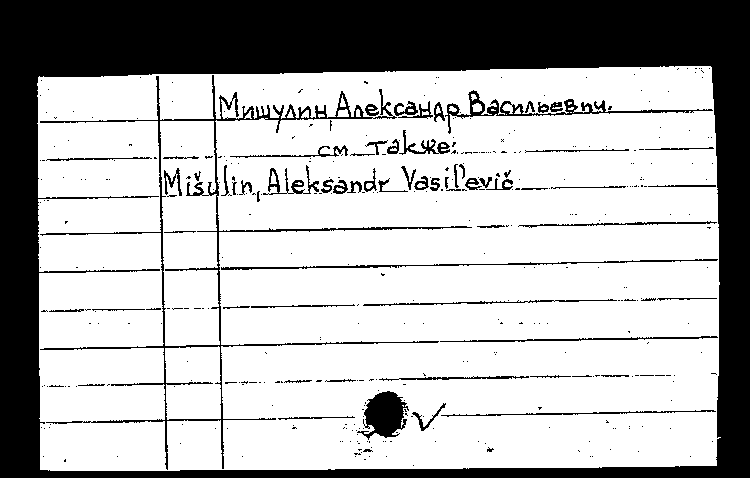 Мишулин Александр Васильевич.
см. также:
Mišulin, Aleksandr Vasil'evič